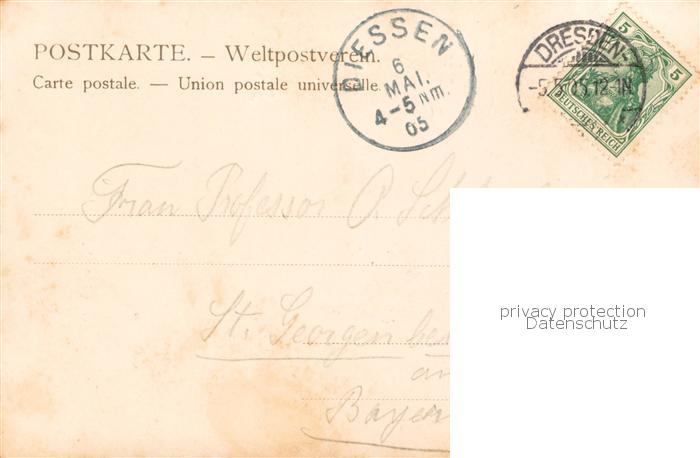 POSTKARTE. – Weltpostverein.
Carte postale. — Union postale universelle.
DIESSEN
6
MAI.
4-5 Nm.
05
DRESDEN-
-5.5.05.12-1N.
5 5
DEUTSCHES REICH
Frau Professor P.
St. Georgen
Bayern
privacy protection
Datenschutz